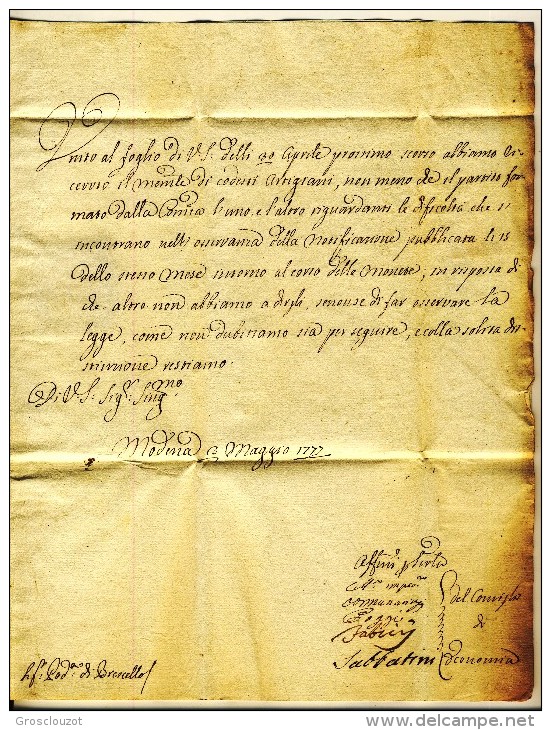 Unito al foglio di V.S. delli 30 Aprile prossimo scorso abbiamo ri-
cevuto il mem.le di codesti Artigiani, non meno che il partito for-
mato dalla Com.tà l'uno, e l'altro riguardanti le dificoltà che s'
incontrano nell'osservanza della Notificazione pubblicata li 15
dello stesso mese intorno al corso delle monete, in risposta di
che altro non abbiamo a dirgli, senonse di far osservare la
legge, come non dubitiamo sia per seguire, e colla solita di-
stinzione restiamo.
Di V.S. Sig.r Sing.mo
Modena 3 Maggio 1777
Aff.mi p. Ser.la
del Consiglo
di
Economia
Sabbatini
Sig.r Pod.à di Brescello
Grosclouzot
delcampe.net